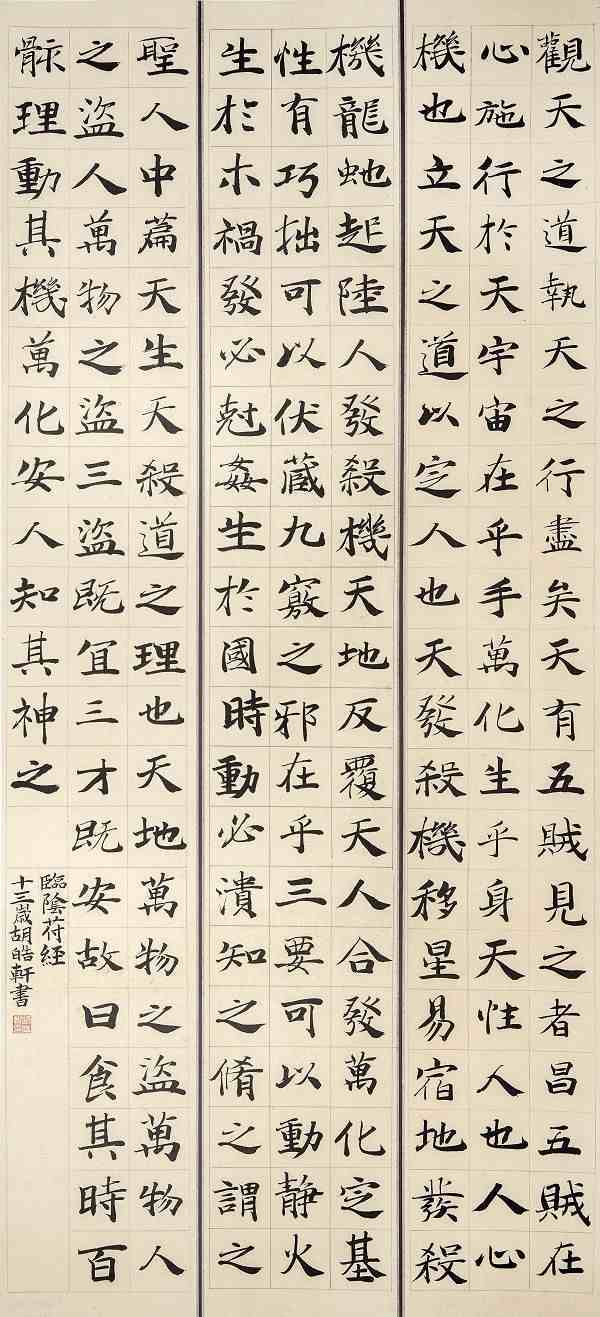 觀天之道執天之行盡矣天有五賊見之者昌五賊在
心施行於天宇宙在乎手萬化生乎身天性人也人心
機也立天之道以定人也天發殺機移星易宿地發殺
機龍虵起陸人發殺機天地反覆天人合發萬化定基
性有巧拙可以伏藏九竅之邪在乎三要可以動靜火
生於木禍發必尅姦生於國時動必潰知之脩之謂之
聖人中篇天生天殺道之理也天地萬物之盜萬物人
之盜人萬物之盜三盜既宜三才既安故曰食其時百
骸理動其機萬化安人知其神之
臨陰苻經
十三歲胡皓軒書